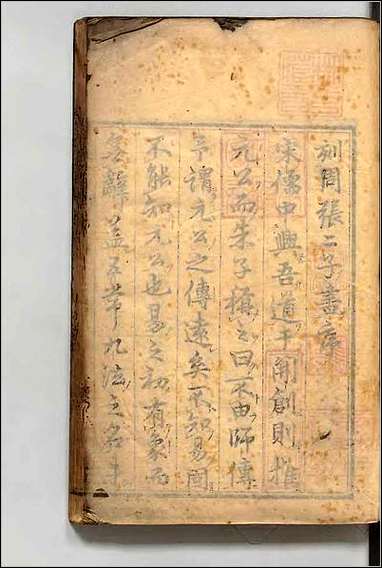 刻周張二子書序
宋儒中興吾道于開創則推
元公而朱子稱之曰不由師傳
予謂元公之傳遠矣不知易固
不能知元公也易之初有象而
無辭蓋五帝九